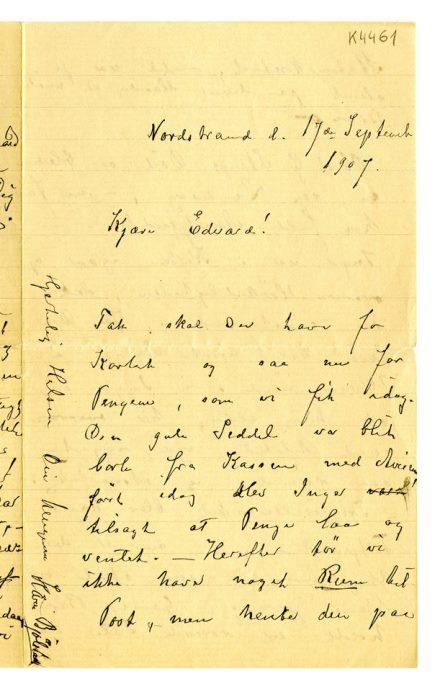 K4461
Nordstrand d. 17de Septemb
1907.
Kjære Edvard!
Tak skal Du have for
Kortet og saa nu for
Pengene, som vi fik idag.
Den gule Seddel var blit
borte fra Kassen med Avisen
først idag blev Inger
tilsagt at Penge laa og
ventet. — Herefter tør vi
ikke have noget Rum til
Post, men hente den paa
Hjertelig Hilsen Din hengivne